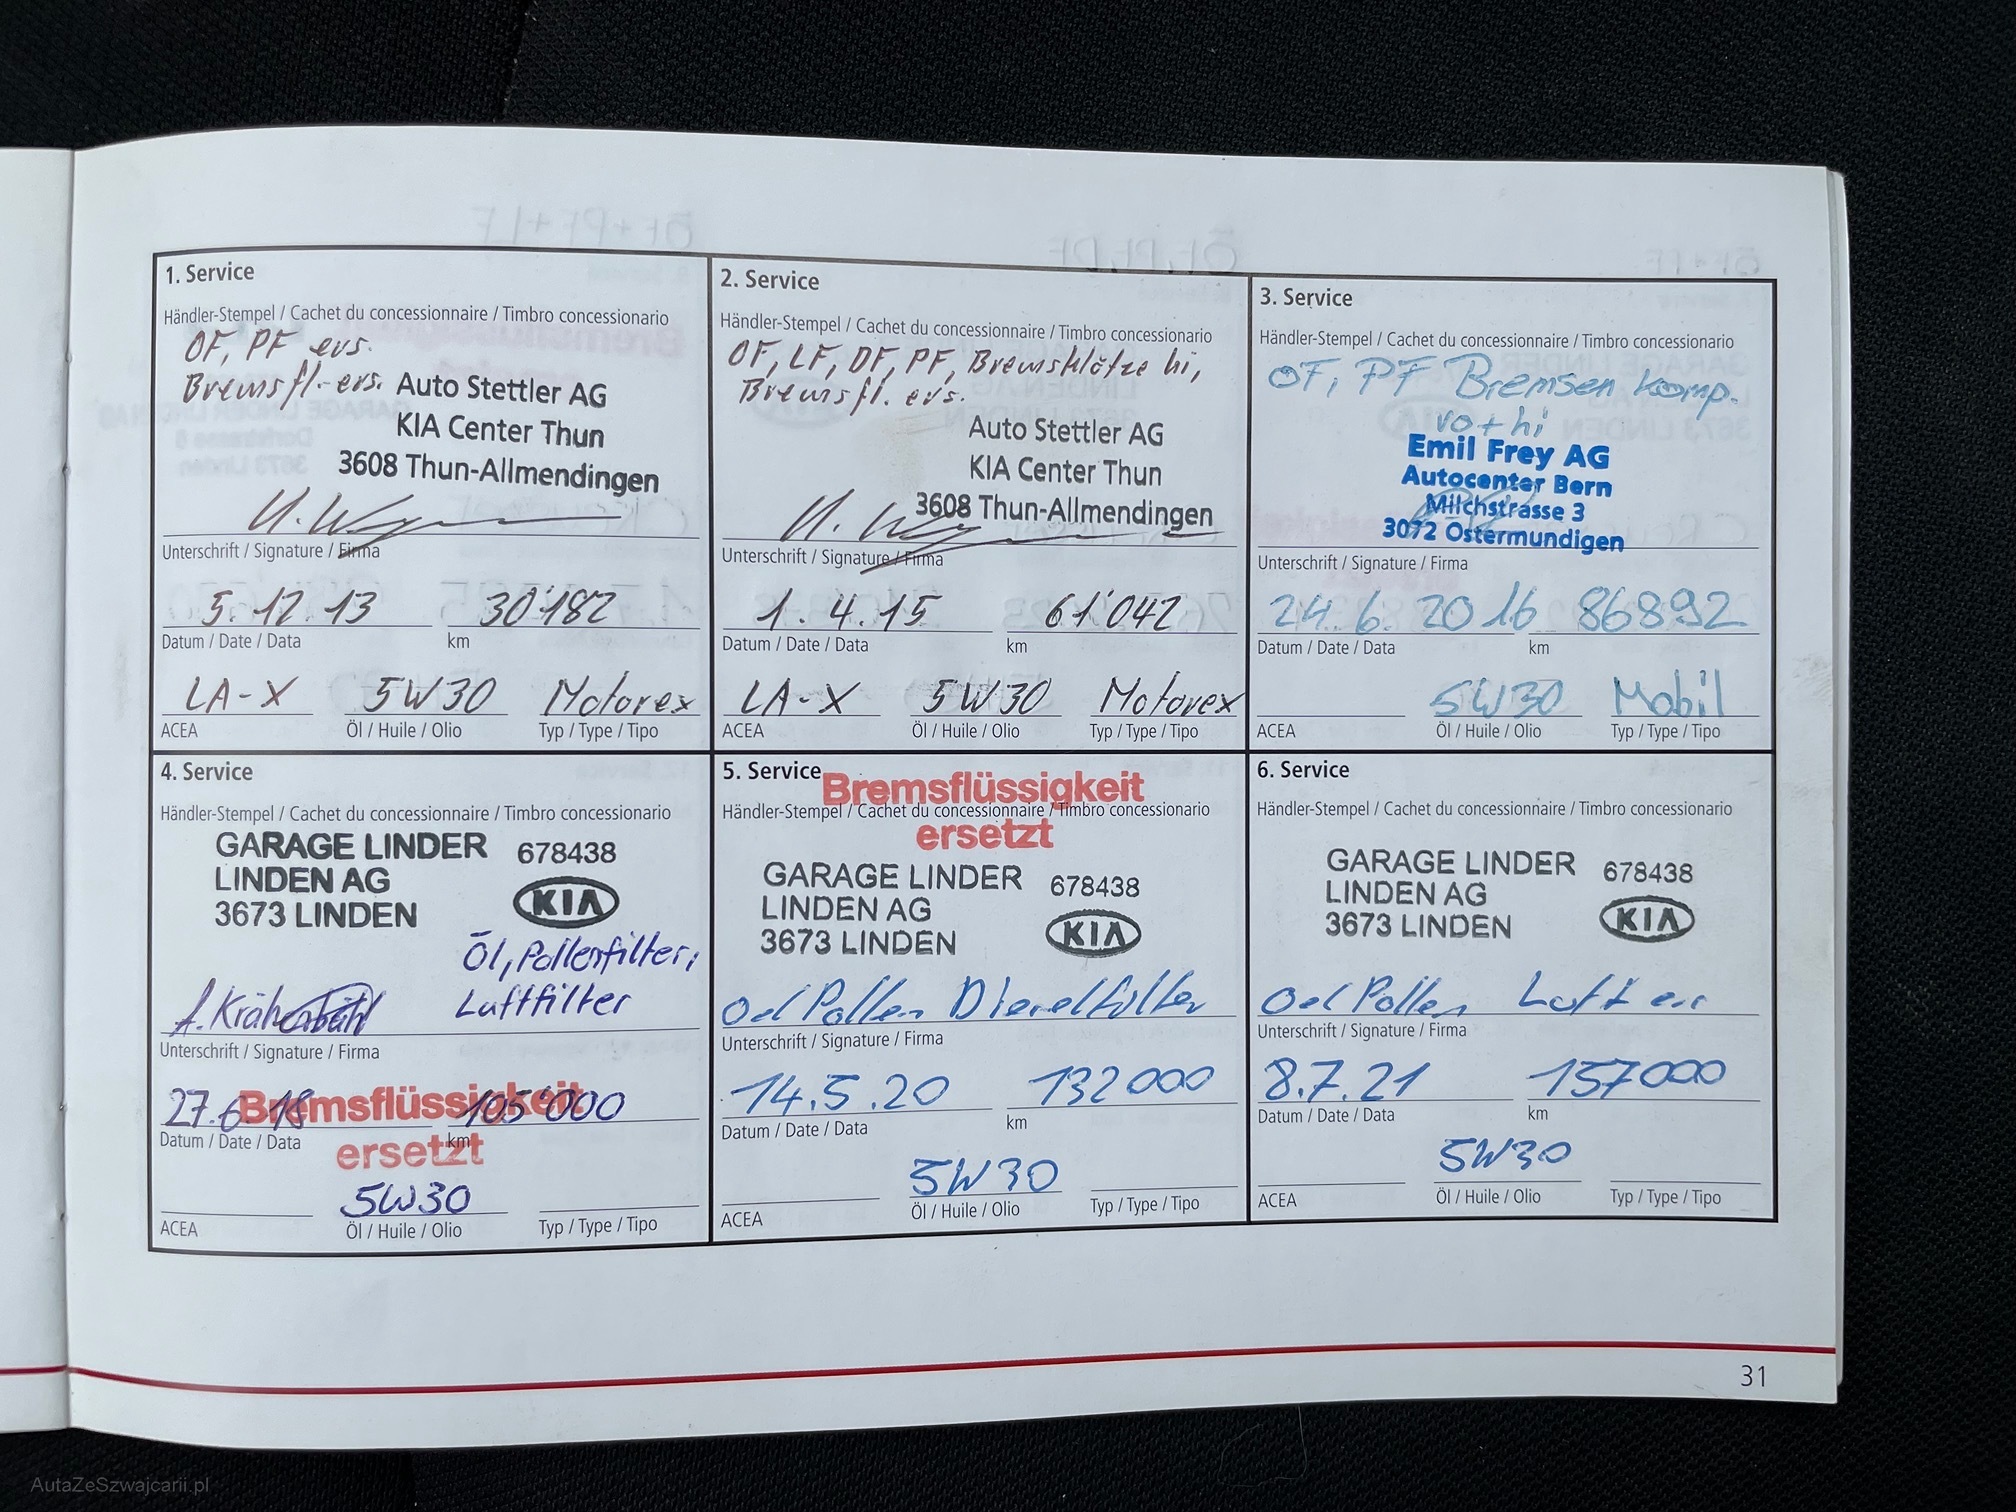 1. Service
Händler-Stempel / Cachet du concessionnaire / Timbro concessionario
OF, PF ers.
Bremsfl.-ers.
Auto Stettler AG
KIA Center Thun
3608 Thun-Allmendingen
Unterschrift / Signature / Firma
5.12.13 30'182
Datum / Date / Data km
LA-X 5W30 Motorex
ACEA Öl / Huile / Olio Typ / Type / Tipo
2. Service
Händler-Stempel / Cachet du concessionnaire / Timbro concessionario
OF, LF, DF, PF, Bremsklötze hi,
Bremsfl. ers.
Auto Stettler AG
KIA Center Thun
3608 Thun-Allmendingen
Unterschrift / Signature / Firma
1.4.15 61'042
Datum / Date / Data km
LA-X 5W30 Motorex
ACEA Öl / Huile / Olio Typ / Type / Tipo
3. Service
Händler-Stempel / Cachet du concessionnaire / Timbro concessionario
OF, PF Bremsen komp.
vo + hi
Emil Frey AG
Autocenter Bern
Milchstrasse 3
3072 Ostermundigen
Unterschrift / Signature / Firma
24.6.2016 86892
Datum / Date / Data km
5W30 Mobil
ACEA Öl / Huile / Olio Typ / Type / Tipo
4. Service
Händler-Stempel / Cachet du concessionnaire / Timbro concessionario
GARAGE LINDER 678438
LINDEN AG
3673 LINDEN
KIA
Öl, Pollenfilter,
Luftfilter
A. Krähenbühl
Unterschrift / Signature / Firma
27.6.18 105'000
Bremsflüssigkeit
Datum / Date / Data km
ersetzt
5W30
ACEA Öl / Huile / Olio Typ / Type / Tipo
5. Service
Bremsflüssigkeit
Händler-Stempel / Cachet du concessionnaire / Timbro concessionario
ersetzt
GARAGE LINDER 678438
LINDEN AG
3673 LINDEN
KIA
Oel Pollen Dieselfilter
Unterschrift / Signature / Firma
14.5.20 132000
Datum / Date / Data km
5W30
ACEA Öl / Huile / Olio Typ / Type / Tipo
6. Service
Händler-Stempel / Cachet du concessionnaire / Timbro concessionario
GARAGE LINDER 678438
LINDEN AG
3673 LINDEN
KIA
Oel Pollen Luft
Unterschrift / Signature / Firma
8.7.21 157000
Datum / Date / Data km
5W30
ACEA Öl / Huile / Olio Typ / Type / Tipo
31
AutaZeSzwajcarii.pl